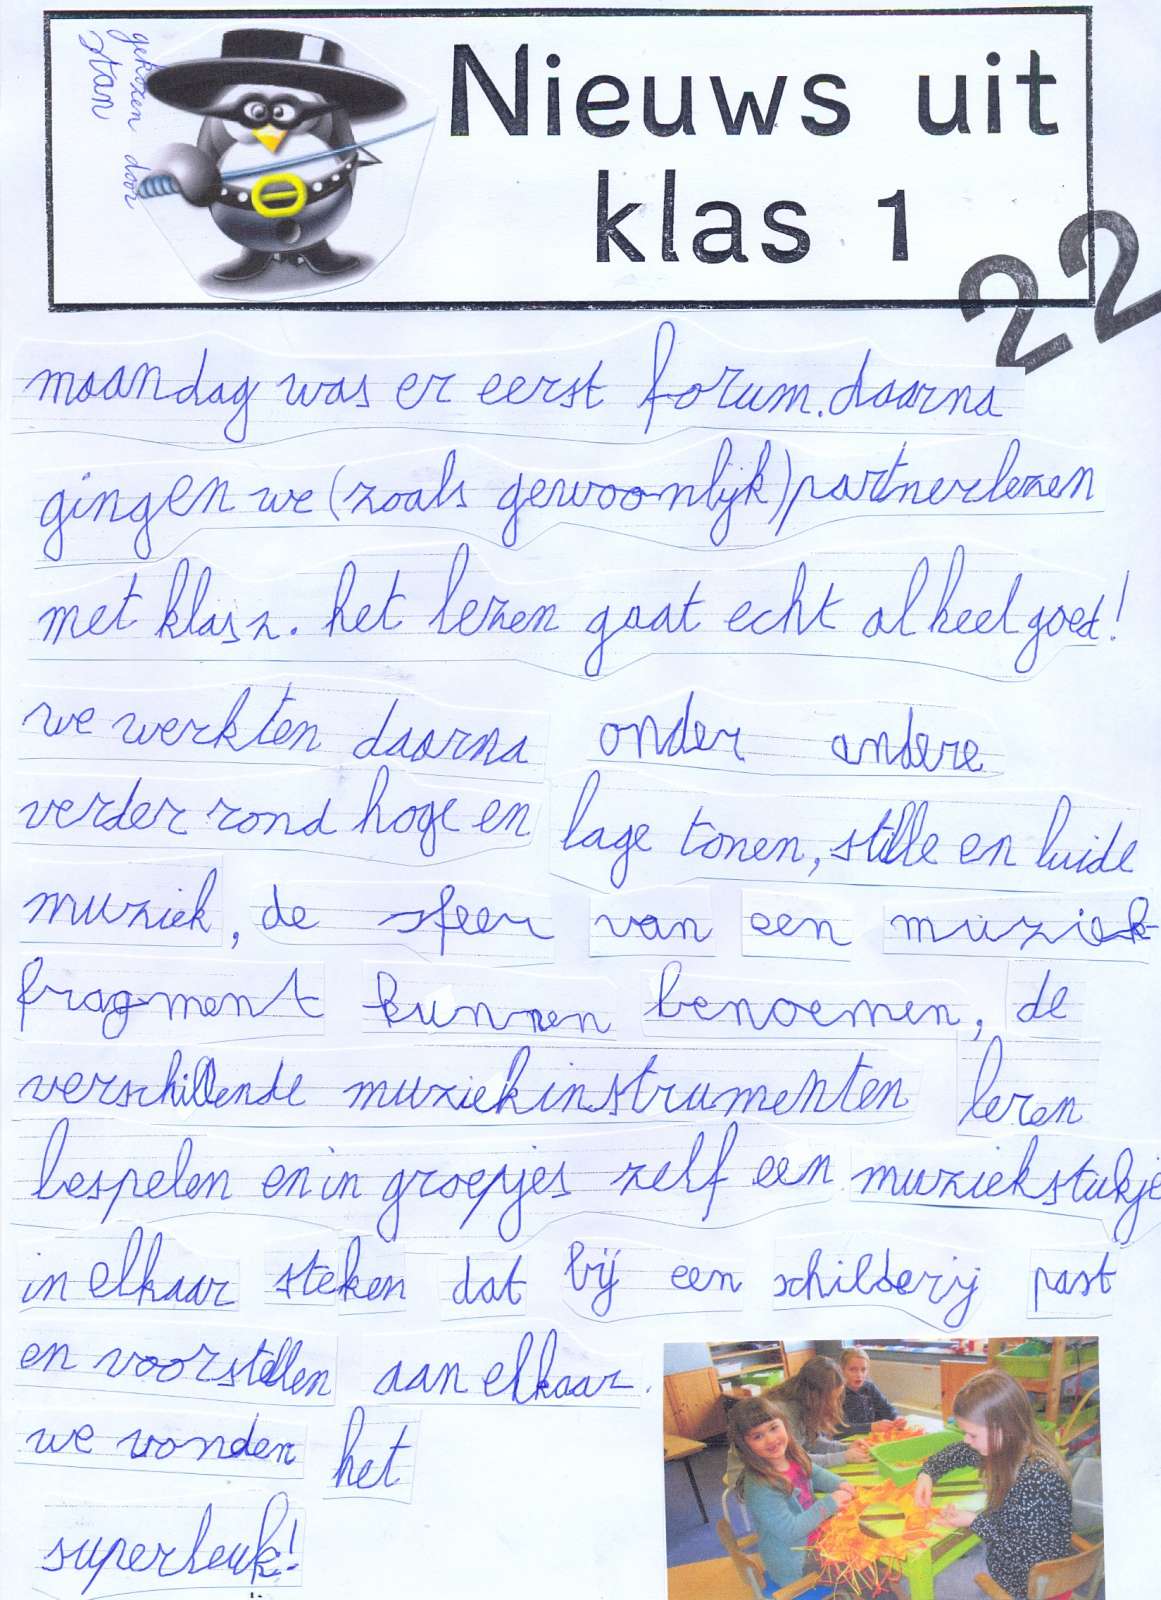 gekozen door
Stan
Nieuws uit
klas 1
22
maandag was er eerst forum. daarna
gingen we (zoals gewoonlijk) partnerlezen
met klas 2. het lezen gaat echt al heel goed!
we werkten daarna onder andere
verder rond hoge en lage tonen, stille en luide
muziek, de sfeer van een muziek-
fragment kunnen benoemen, de
verschillende muziekinstrumenten leren
bespelen en in groepjes zelf een muziekstukje
in elkaar steken dat bij een schilderij past
en voorstellen aan elkaar.
we vonden het
superleuk!